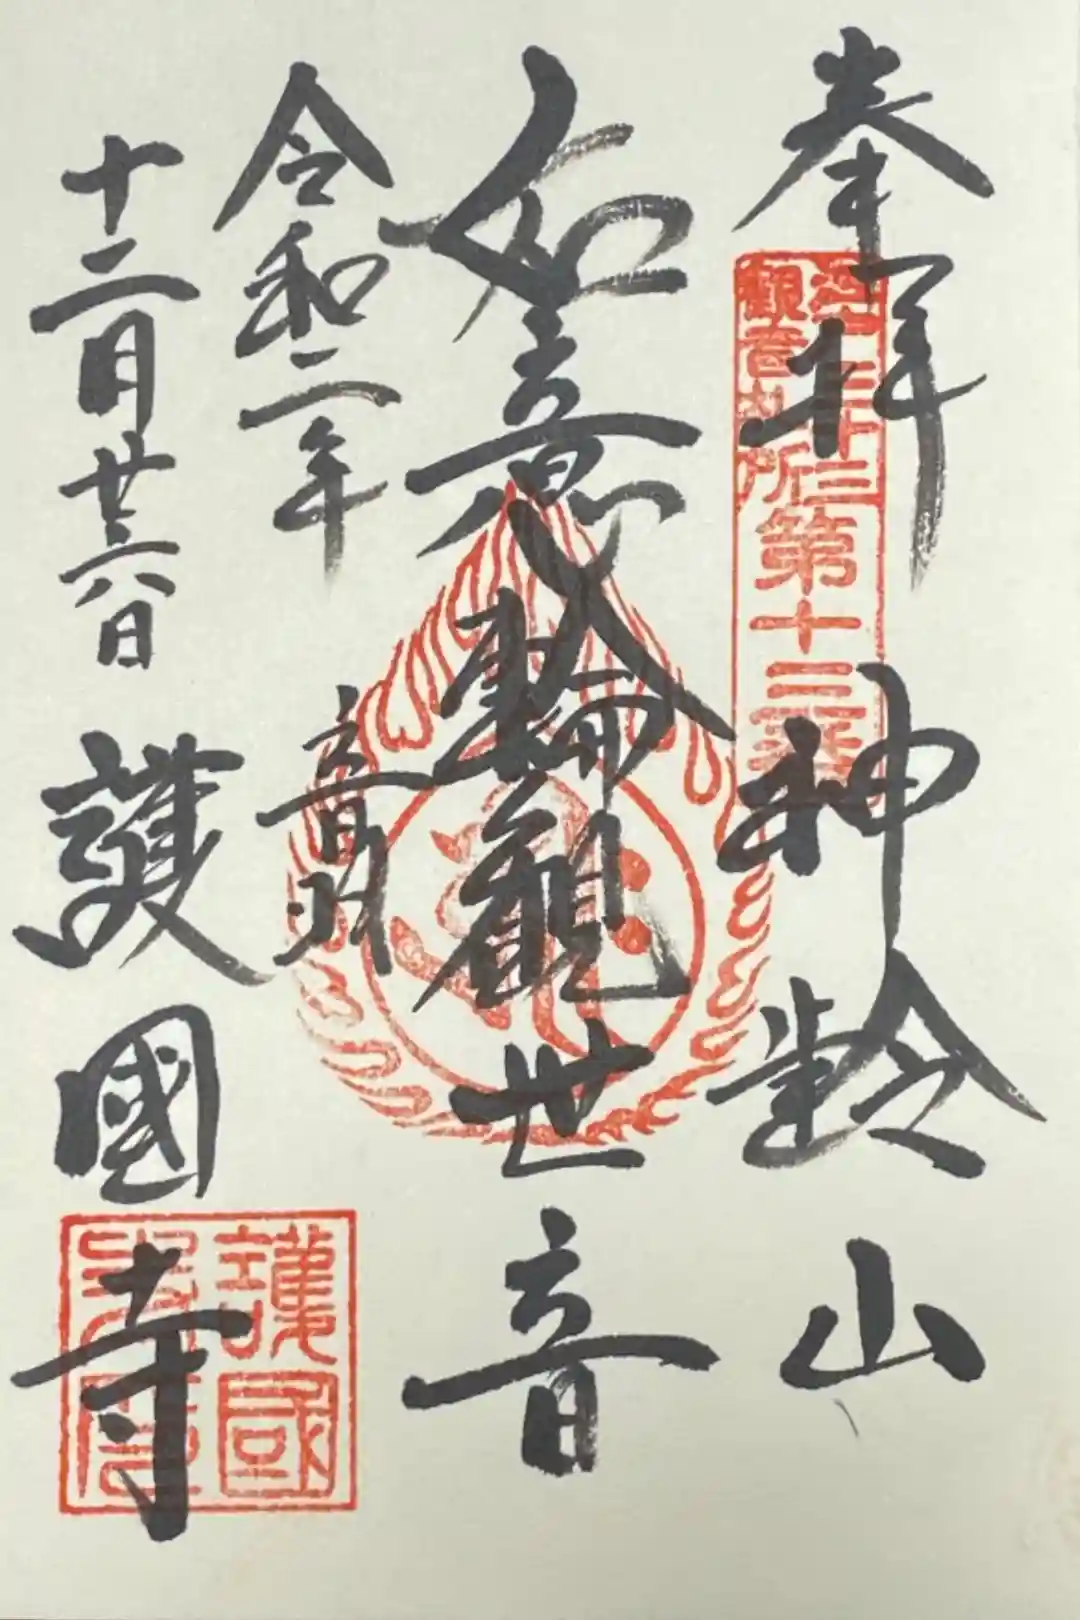 奉拝 神齢山
江戸三十三
観音札所
第十三番
如意輪観世音
令和二年
十二月廿六日
音羽
護國寺
護國